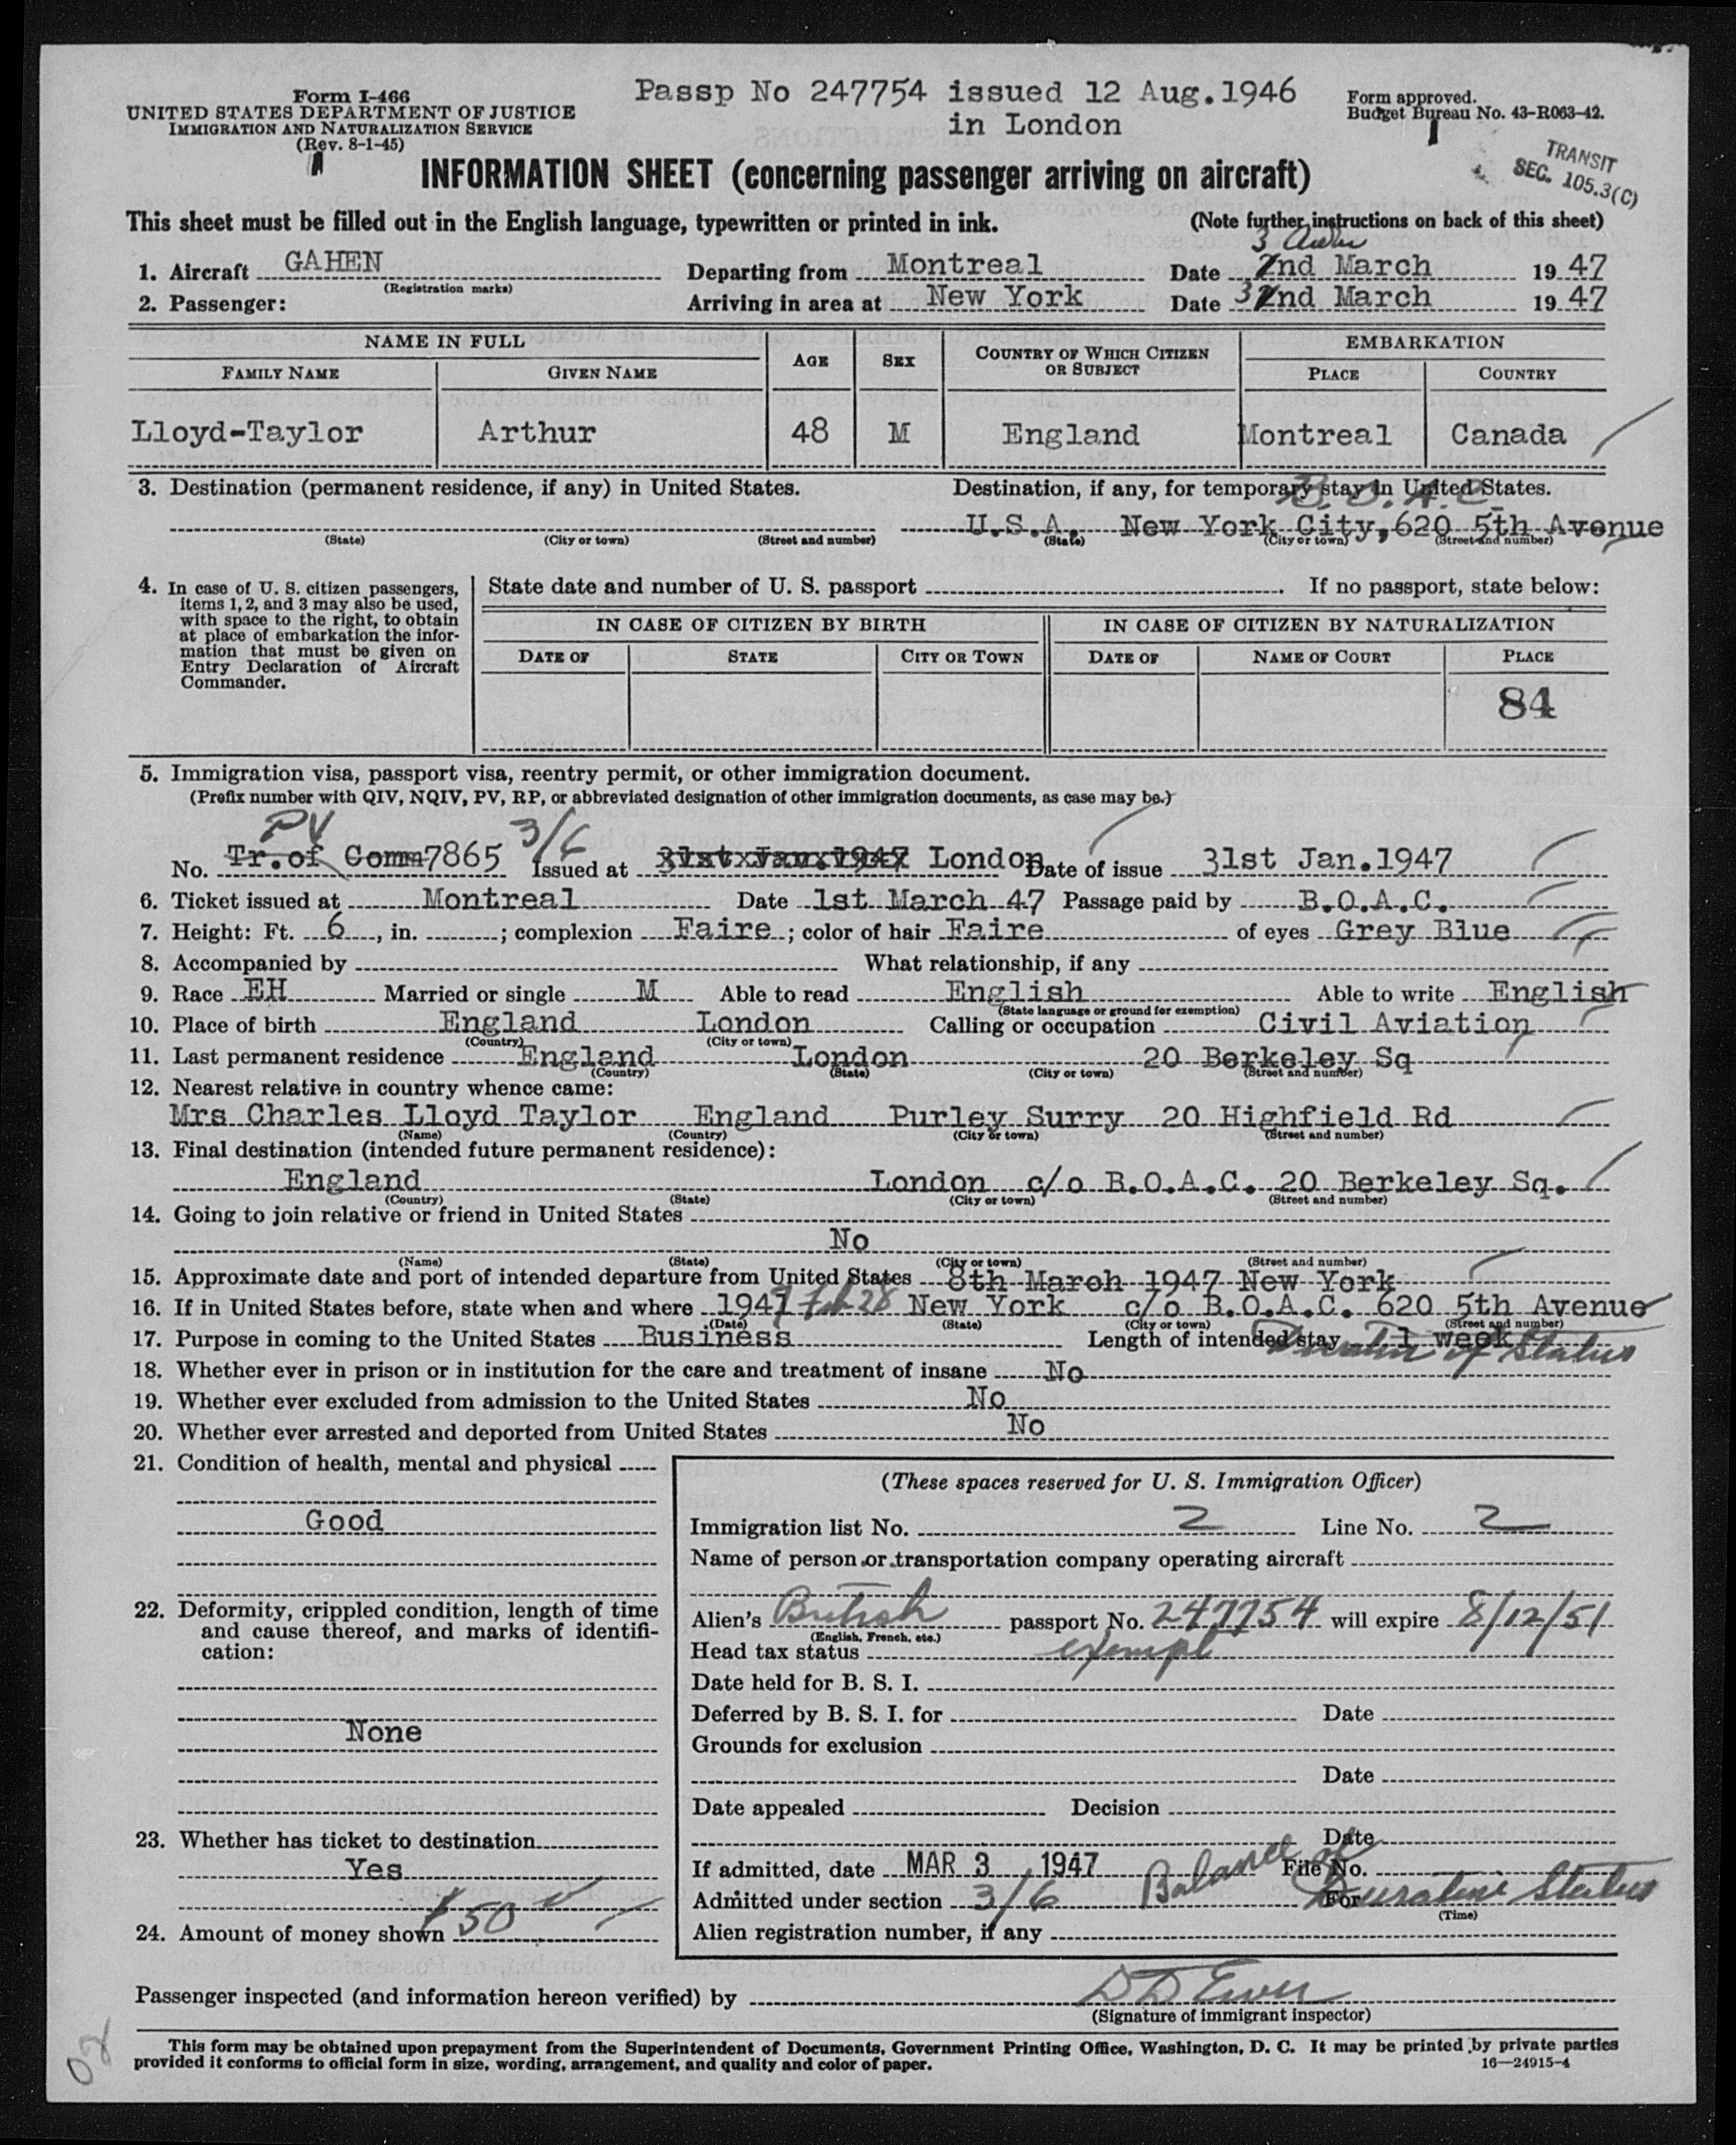 Form I-466
UNITED STATES DEPARTMENT OF JUSTICE
IMMIGRATION AND NATURALIZATION SERVICE
(Rev. 8-1-45)
Passp No 247754 issued 12 Aug.1946
in London
Form approved.
Budget Bureau No. 43-R063-42.
TRANSIT
SEC. 105.3(C)
INFORMATION SHEET (concerning passenger arriving on aircraft)
This sheet must be filled out in the English language, typewritten or printed in ink. (Note further instructions on back of this sheet)
3
1. Aircraft GAHEN Departing from Montreal Date 2nd March 1947
(Registration marks)
2. Passenger: Arriving in area at New York Date 3 2nd March 1947
NAME IN FULL AGE SEX COUNTRY OF WHICH CITIZEN OR SUBJECT EMBARKATION
FAMILY NAME GIVEN NAME PLACE COUNTRY
Lloyd-Taylor Arthur 48 M England Montreal Canada
3. Destination (permanent residence, if any) in United States. Destination, if any, for temporary stay in United States.
B.O.A.C.
U.S.A. New York City, 620 5th Avenue
(State) (City or town) (Street and number) (State) (City or town) (Street and number)
4. In case of U. S. citizen passengers,
items 1, 2, and 3 may also be used,
with space to the right, to obtain
at place of embarkation the infor-
mation that must be given on
Entry Declaration of Aircraft
Commander.
State date and number of U. S. passport . If no passport, state below:
IN CASE OF CITIZEN BY BIRTH IN CASE OF CITIZEN BY NATURALIZATION
DATE OF STATE CITY OR TOWN DATE OF NAME OF COURT PLACE
84
5. Immigration visa, passport visa, reentry permit, or other immigration document.
(Prefix number with QIV, NQIV, PV, RP, or abbreviated designation of other immigration documents, as case may be.)
PV 3/6
No. Tr.of Comm7865 Issued at 31st Jan.1947 London Date of issue 31st Jan.1947
6. Ticket issued at Montreal Date 1st March 47 Passage paid by B.O.A.C.
7. Height: Ft. 6, in. ; complexion Faire; color of hair Faire of eyes Grey Blue
8. Accompanied by What relationship, if any
9. Race EH Married or single M Able to read English Able to write English
(State language or ground for exemption)
10. Place of birth England London Calling or occupation Civil Aviation
(Country) (City or town)
11. Last permanent residence England London 20 Berkeley Sq
(Country) (State) (City or town) (Street and number)
12. Nearest relative in country whence came:
Mrs Charles Lloyd Taylor England Purley Surry 20 Highfield Rd
(Name) (Country) (City or town) (Street and number)
13. Final destination (intended future permanent residence):
England London c/o B.O.A.C. 20 Berkeley Sq.
(Country) (State) (City or town) (Street and number)
14. Going to join relative or friend in United States
No
(Name) (State) (City or town) (Street and number)
15. Approximate date and port of intended departure from United States 8th March 1947 New York
16. If in United States before, state when and where 1947 Feb 28 New York c/o B.O.A.C. 620 5th Avenue
(Date) (State) (City or town) (Street and number)
17. Purpose in coming to the United States Business Length of intended stay 1 week
Duration of Status
18. Whether ever in prison or in institution for the care and treatment of insane No
19. Whether ever excluded from admission to the United States No
20. Whether ever arrested and deported from United States No
21. Condition of health, mental and physical
Good
22. Deformity, crippled condition, length of time
and cause thereof, and marks of identifi-
cation:
None
23. Whether has ticket to destination
Yes
24. Amount of money shown $50
(These spaces reserved for U. S. Immigration Officer)
Immigration list No. 2 Line No. 2
Name of person or transportation company operating aircraft
Alien's British passport No. 247754 will expire 8/12/51
(English, French, etc.)
Head tax status exempt
Date held for B. S. I.
Deferred by B. S. I. for Date
Grounds for exclusion
Date
Date appealed Decision
Date
If admitted, date MAR 3 1947 Balance of File No.
Admitted under section 3/6 For Duration Status
(Time)
Alien registration number, if any
Passenger inspected (and information hereon verified) by
(Signature of immigrant inspector)
This form may be obtained upon prepayment from the Superintendent of Documents, Government Printing Office, Washington, D. C. It may be printed by private parties
provided it conforms to official form in size, wording, arrangement, and quality and color of paper. 16—24915-4